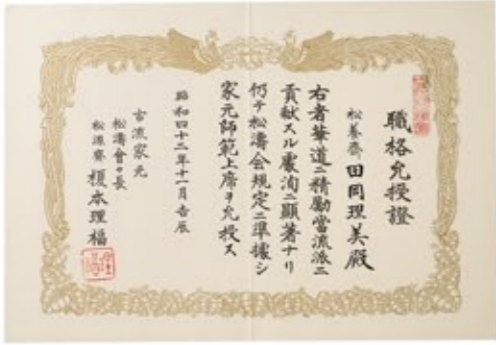 職格允授證
松養齋 田岡理美殿
右者華道ニ精勵當流派ニ
貢献スル處洵ニ顯著ナリ
仍テ松濤会規定ニ準據シ
家元師範上席ヲ允授ス
昭和四十二年十一月吉辰
古流家元
松濤會々長
松源齋 榎本理福